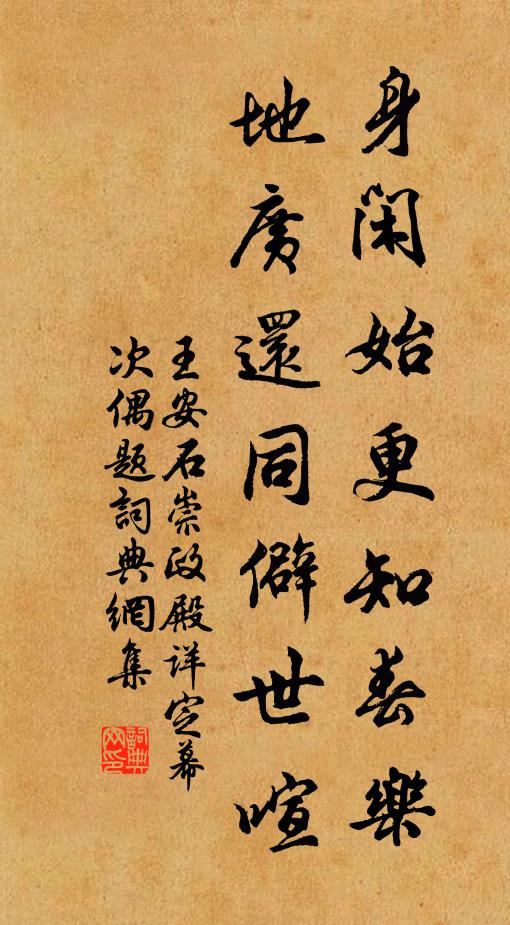 身閑始更知春樂
地廣還同僻世喧
王安石崇政殿详定幕
次偶题詞典網集
詞典
网印